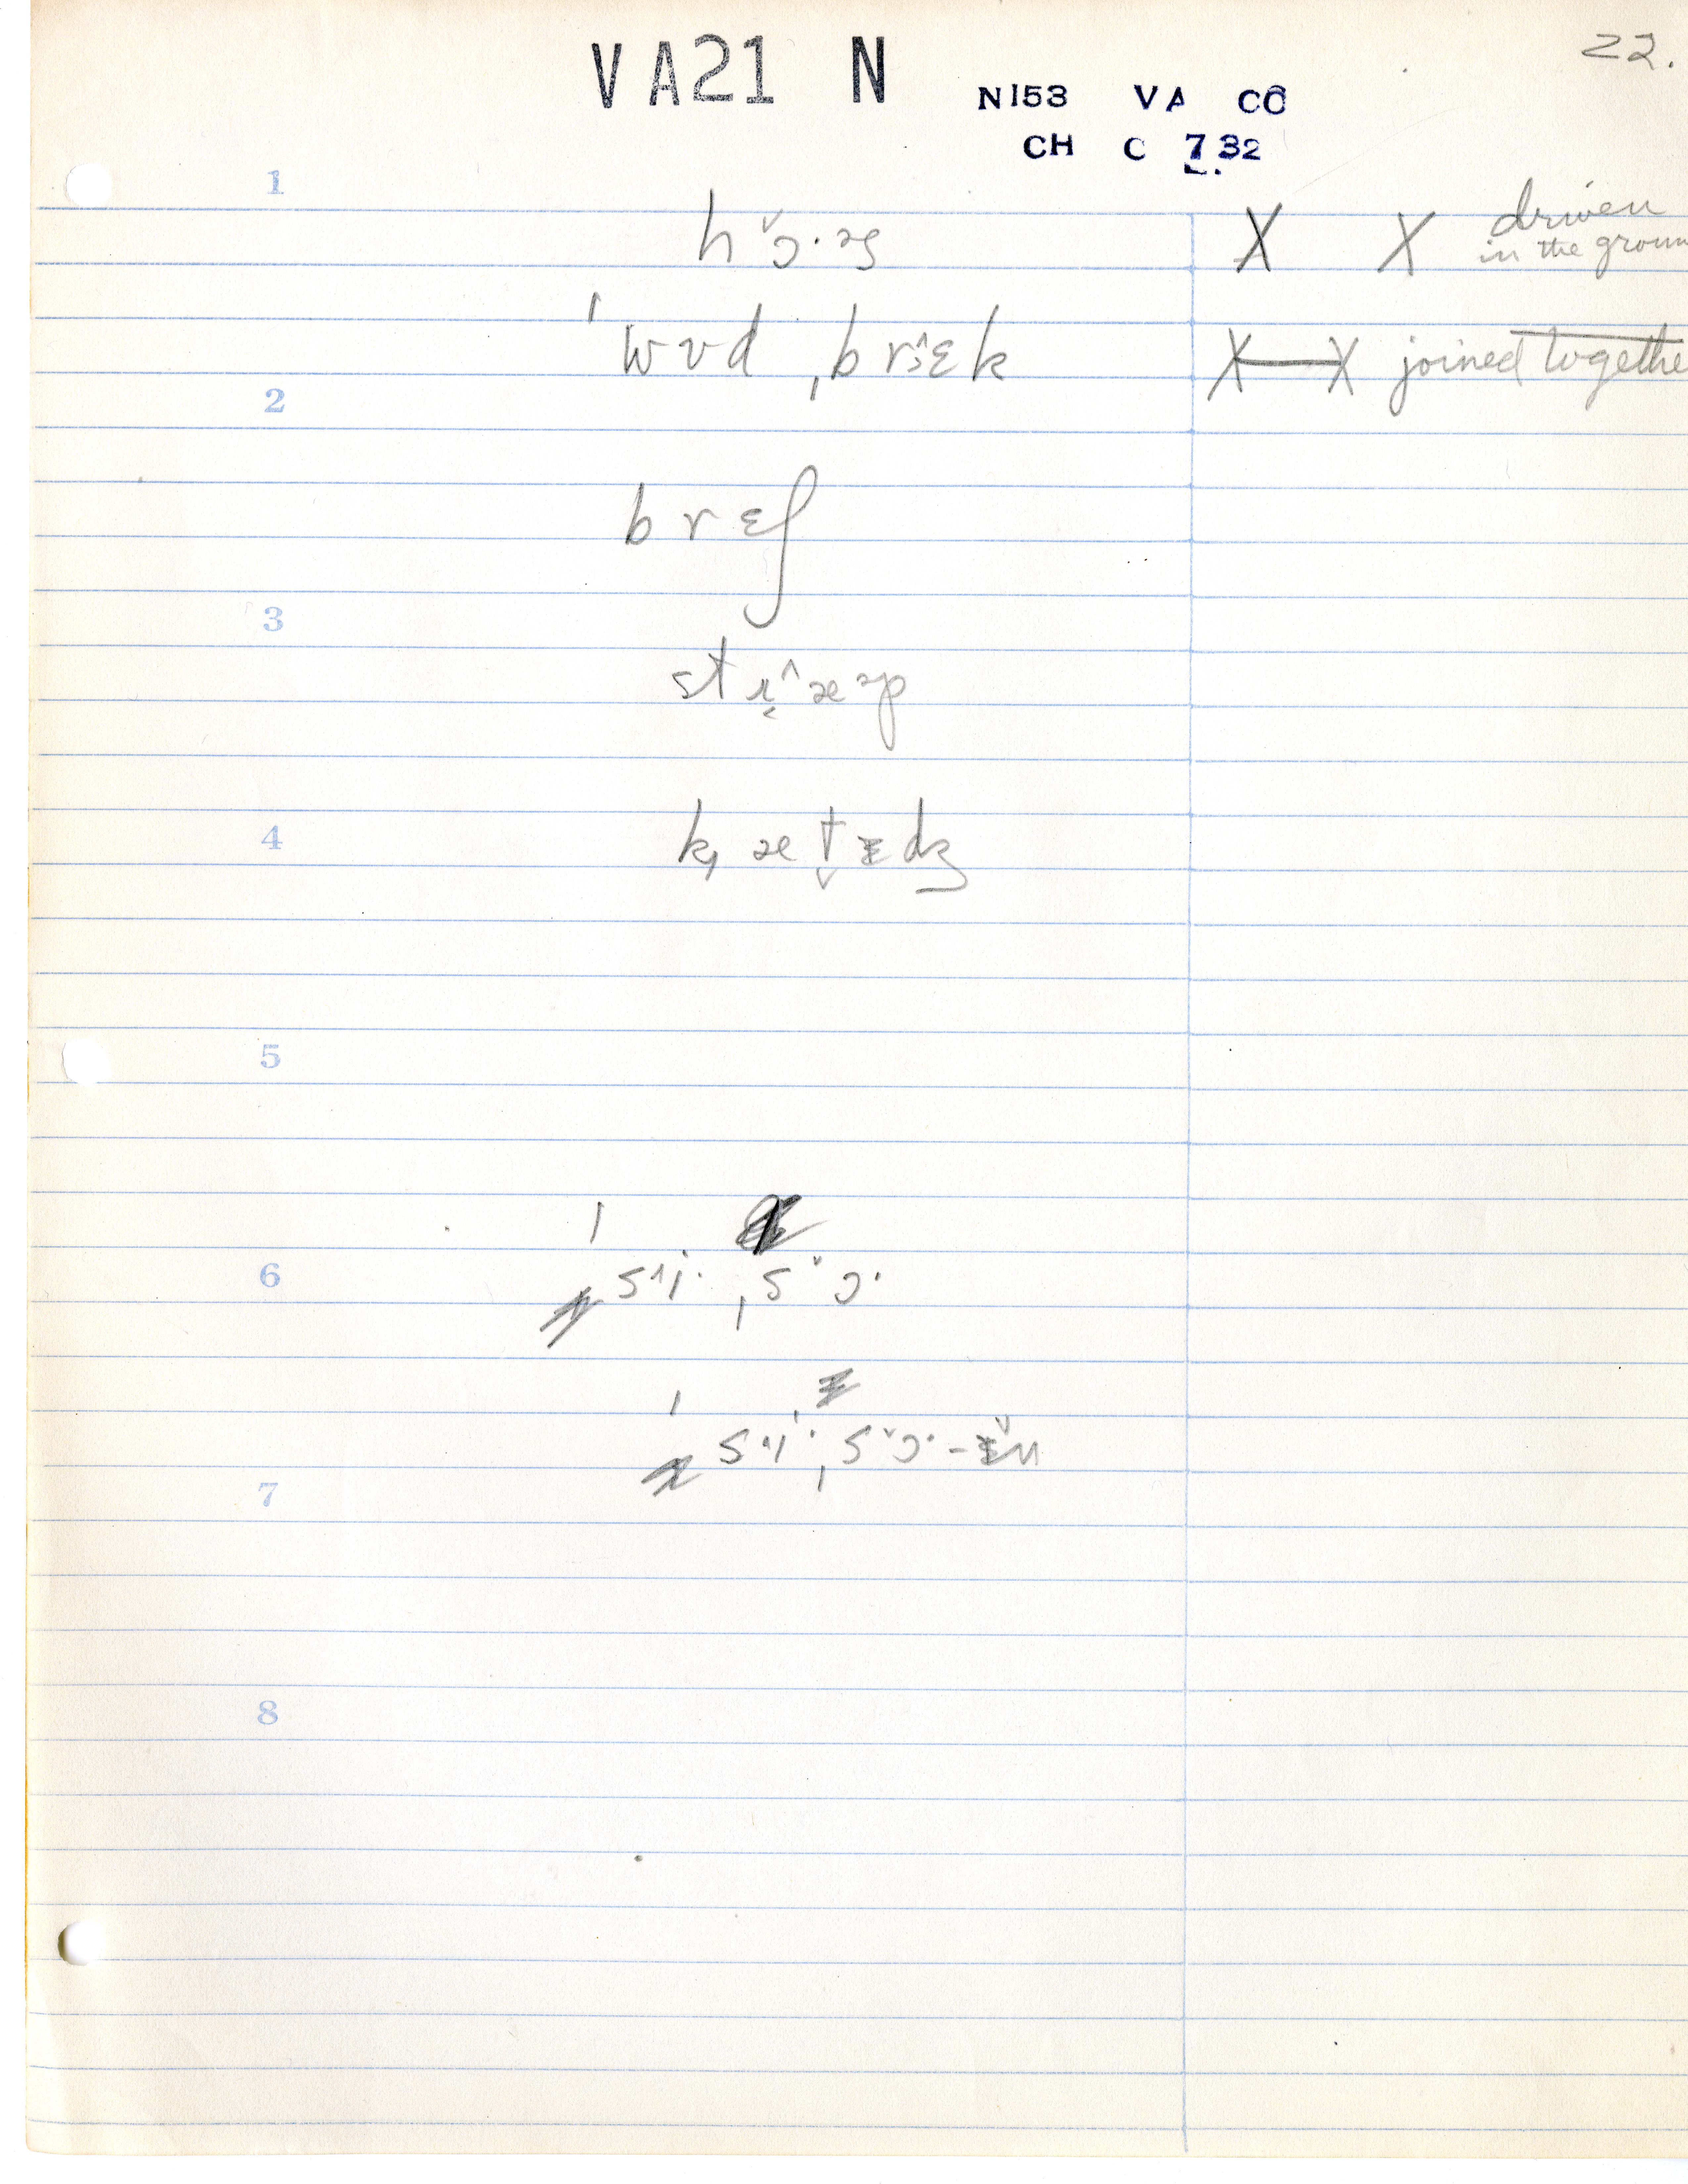 VA21 N
22.
N153 VA CO
CH C 7 32
1
hˇɔ·əs
X X driven
in the groun
ˈwʊd ˌbrɪ^ɛk
X—X joined togethe
2
brɛʃ
3
str̬^æəp
4
k̟æt̬ɪdʒ
5
6
ˈs^i· ˌsˇɔ·
7
ˈs^i· ˌsˇɔ·-ɪˇn
8